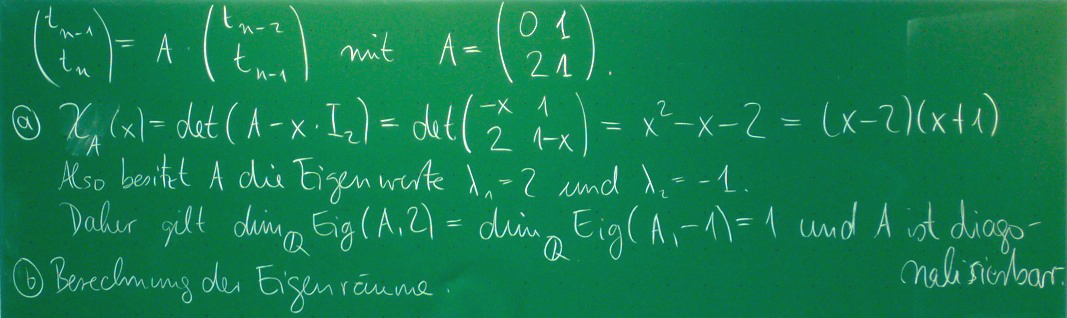 (t_{n-1} t_n) = A · (t_{n-2} t_{n-1}) mit A = (0 1 2 1).
ⓐ χ_A(x) = det(A - x · I_2) = det(-x 1 2 1-x) = x² - x - 2 = (x-2)(x+1)
Also besitzt A die Eigenwerte λ_1 = 2 und λ_2 = -1.
Daher gilt dim_Q Eig(A,2) = dim_Q Eig(A,-1) = 1 und A ist diago-
nalisierbar.
ⓑ Berechnung der Eigenräume.